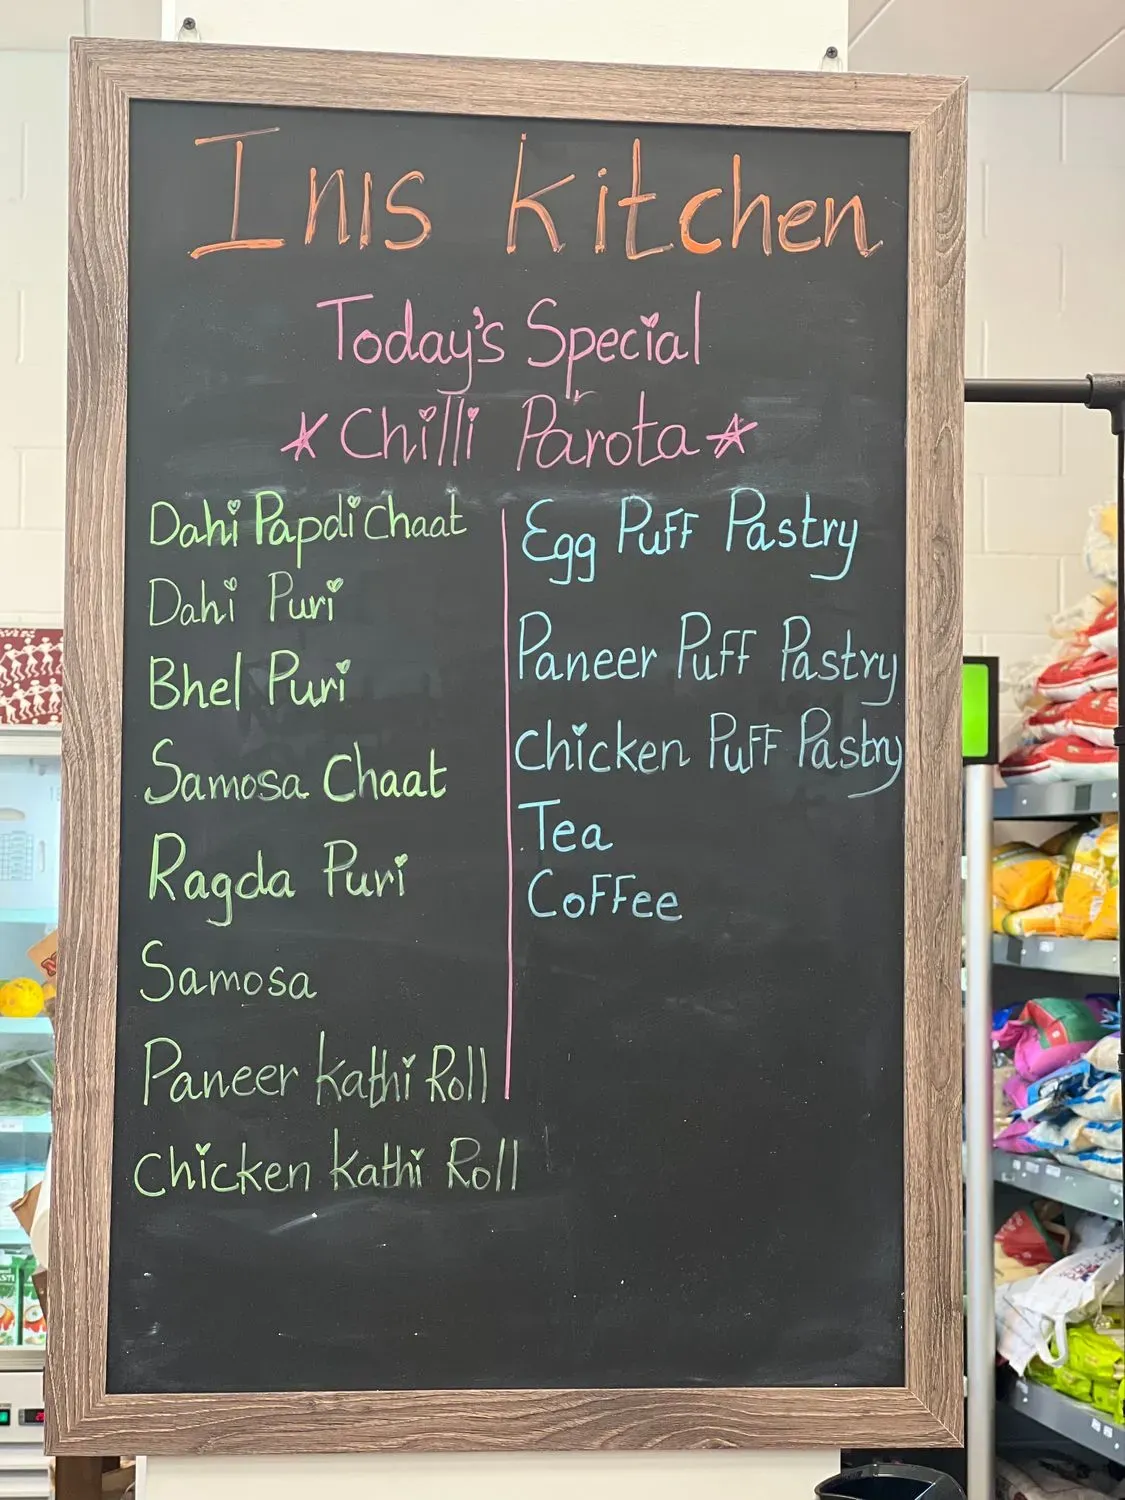 Inis Kitchen
Today's Special
Chilli Parota
Dahi Papdi Chaat
Dahi Puri
Bhel Puri
Samosa Chaat
Ragda Puri
Samosa
Paneer Kathi Roll
Chicken Kathi Roll
Egg Puff Pastry
Paneer Puff Pastry
Chicken Puff Pastry
Tea
Coffee